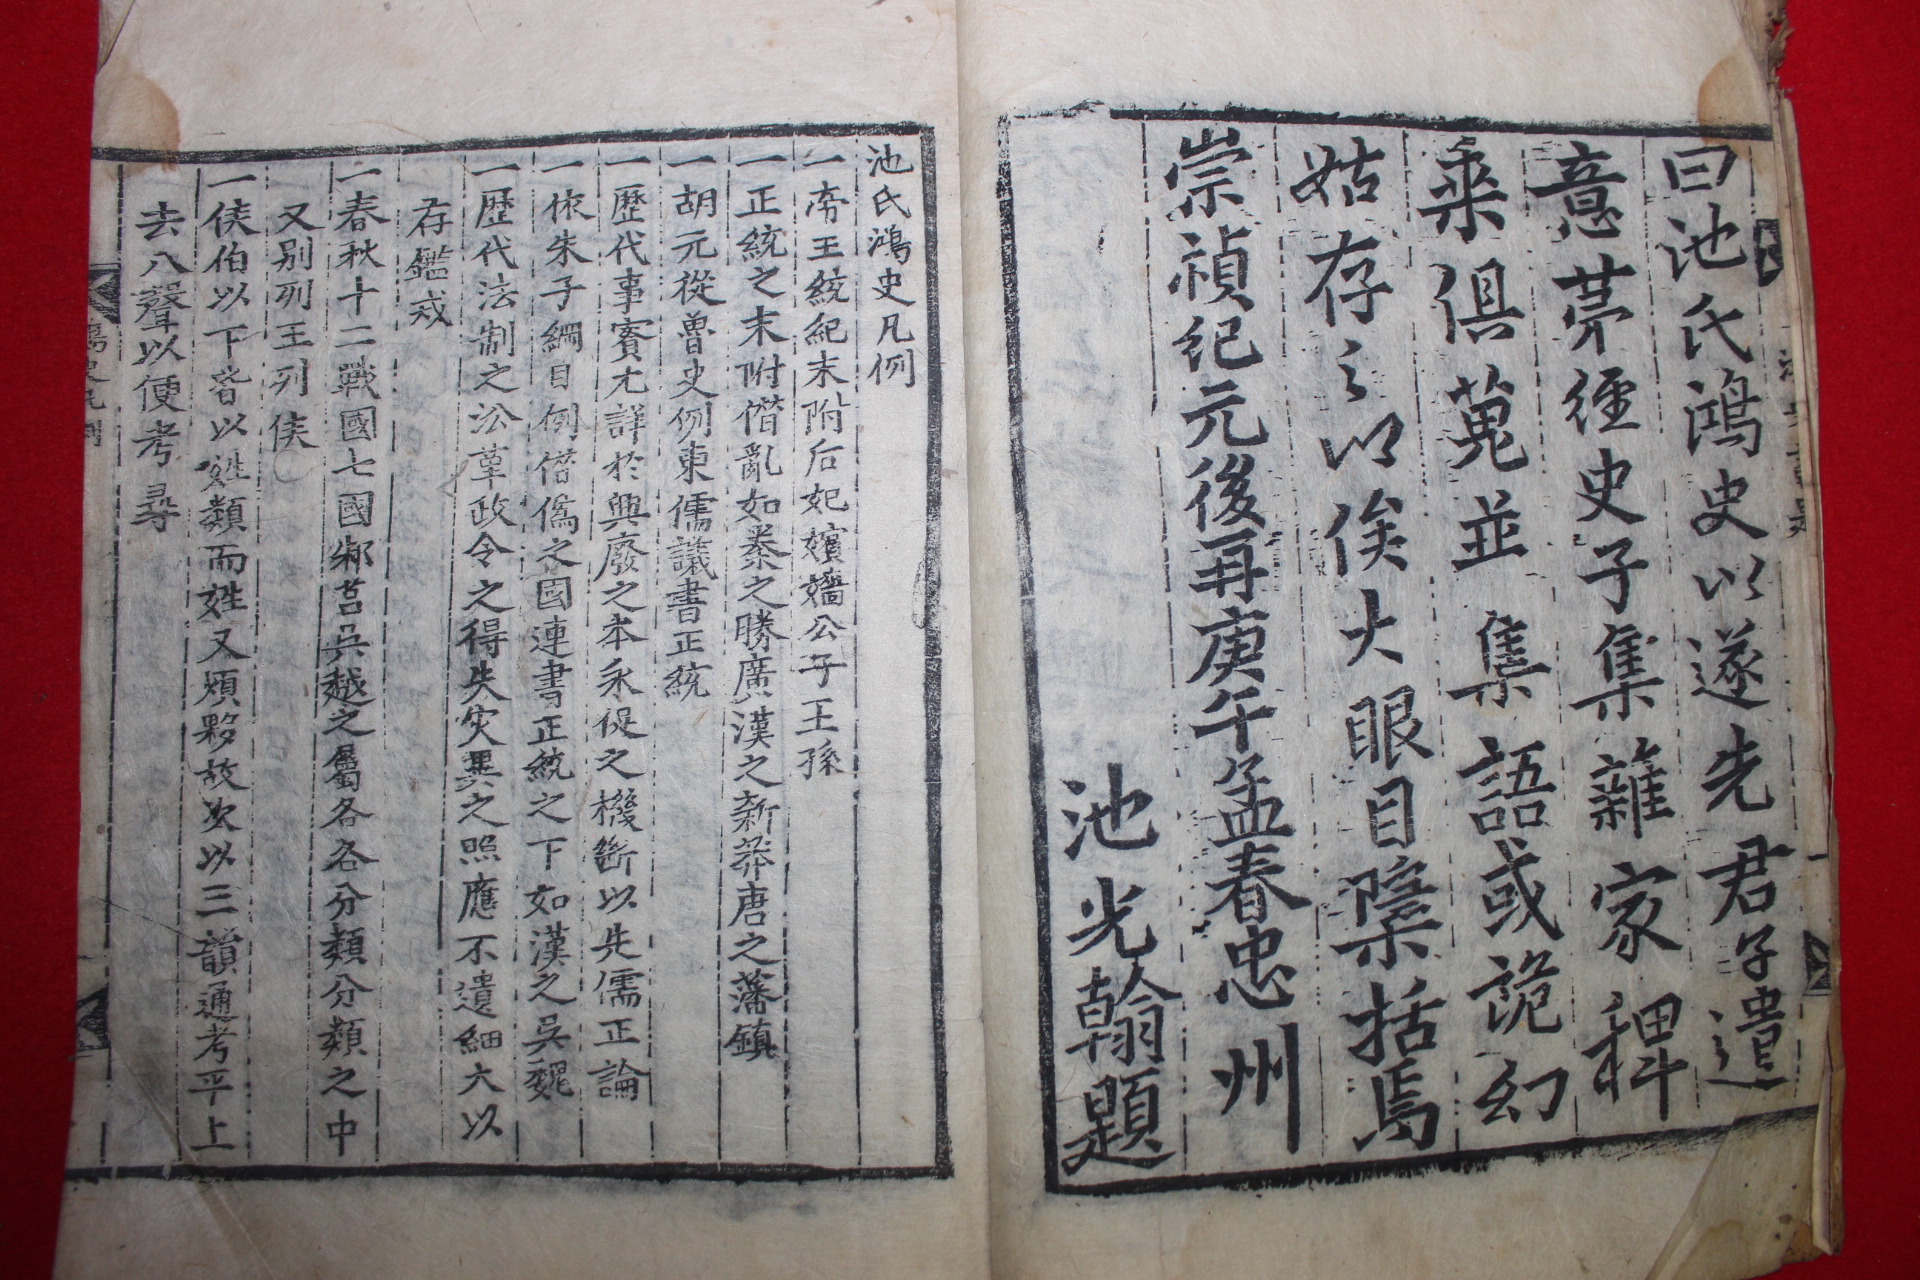 曰池氏鴻史以遂先君子遺
意苐經史子集雜家稗
乗俱蒐並集語或詭幻
姑存之以俟大眼目檃括焉
崇禎紀元後再庚午孟春忠州
池光翰題
池氏鴻史凡例
一帝王統紀末附后妃嬪嬙公子王孫
一正統之末附僭亂如秦之勝廣漢之新莽唐之藩鎮
一胡元從魯史例東儒議書正統
一歷代事實尤詳於興廢之本永促之機斷以先儒正論
一依朱子綱目例僭僞之國連書正統之下如漢之吳魏
一歷代法制之沿革政令之得失灾異之照應不遺細大以
存鑑戒
一春秋十二戰國七國邾莒吳越之屬各各分類分類之中
又別列王列侯
一侯伯以下皆以姓類而姓又煩夥故次以三韻通考平上
去入聲以便考尋